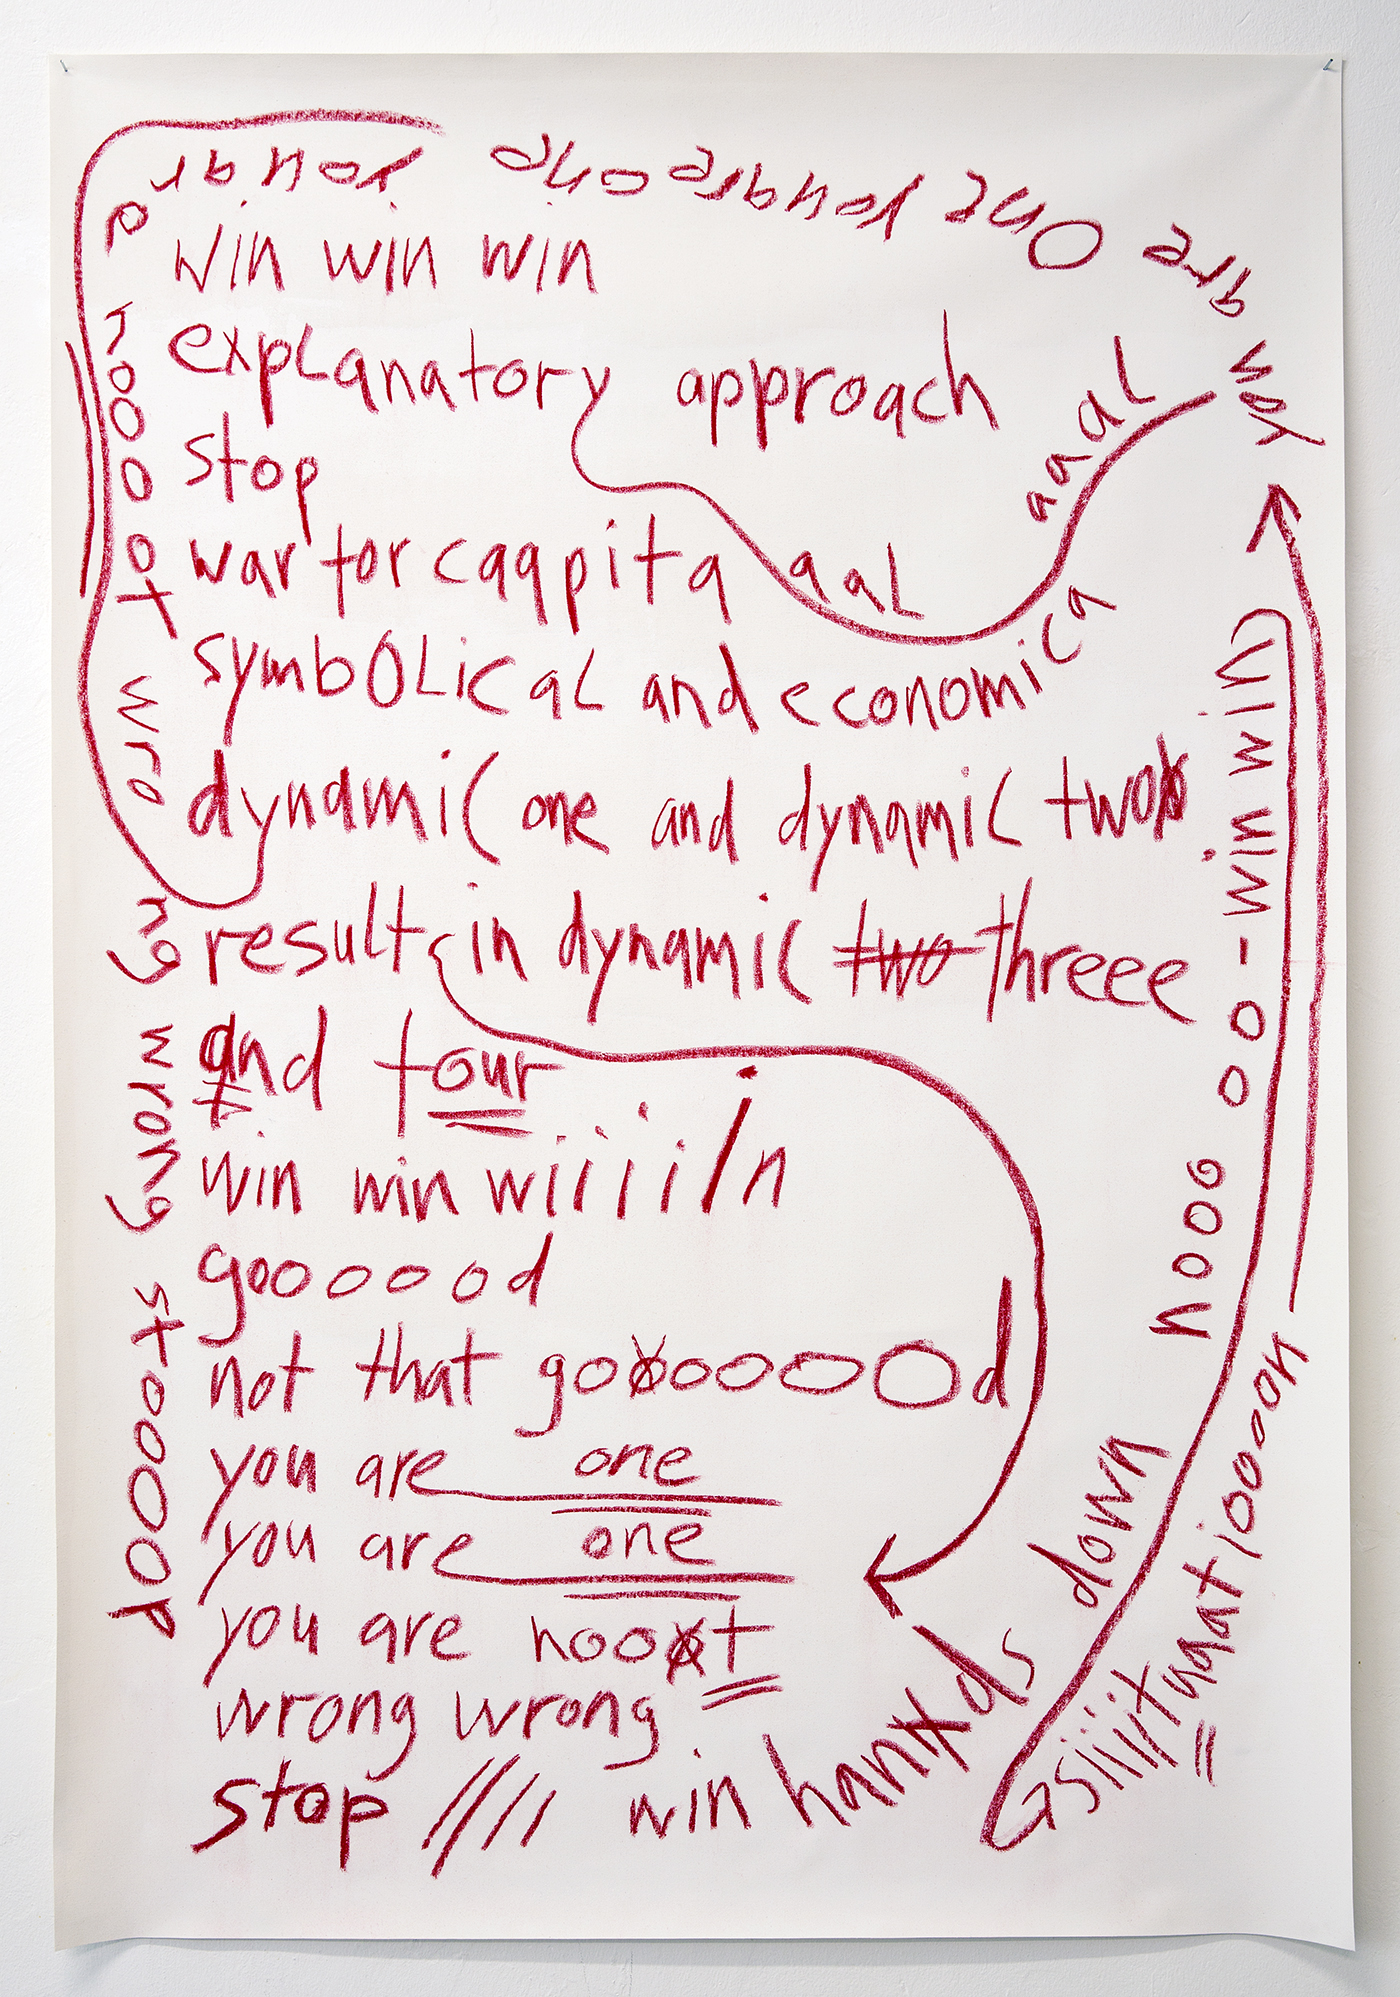 win win win
explanatory approach
stop
war for caapita aal aaal
symbOLicaL and economica
dynamic one and dynamic two
result in dynamic two threee
and four
win win wiiiiin
goooood
not that goooooooOd
you are one
you are one
you are nooot
wrong wrong
stop ///// win hands down nooo oo-win win)
siiituaatioooon
you are One you are one and you are noooot wrong wrong stooOOp